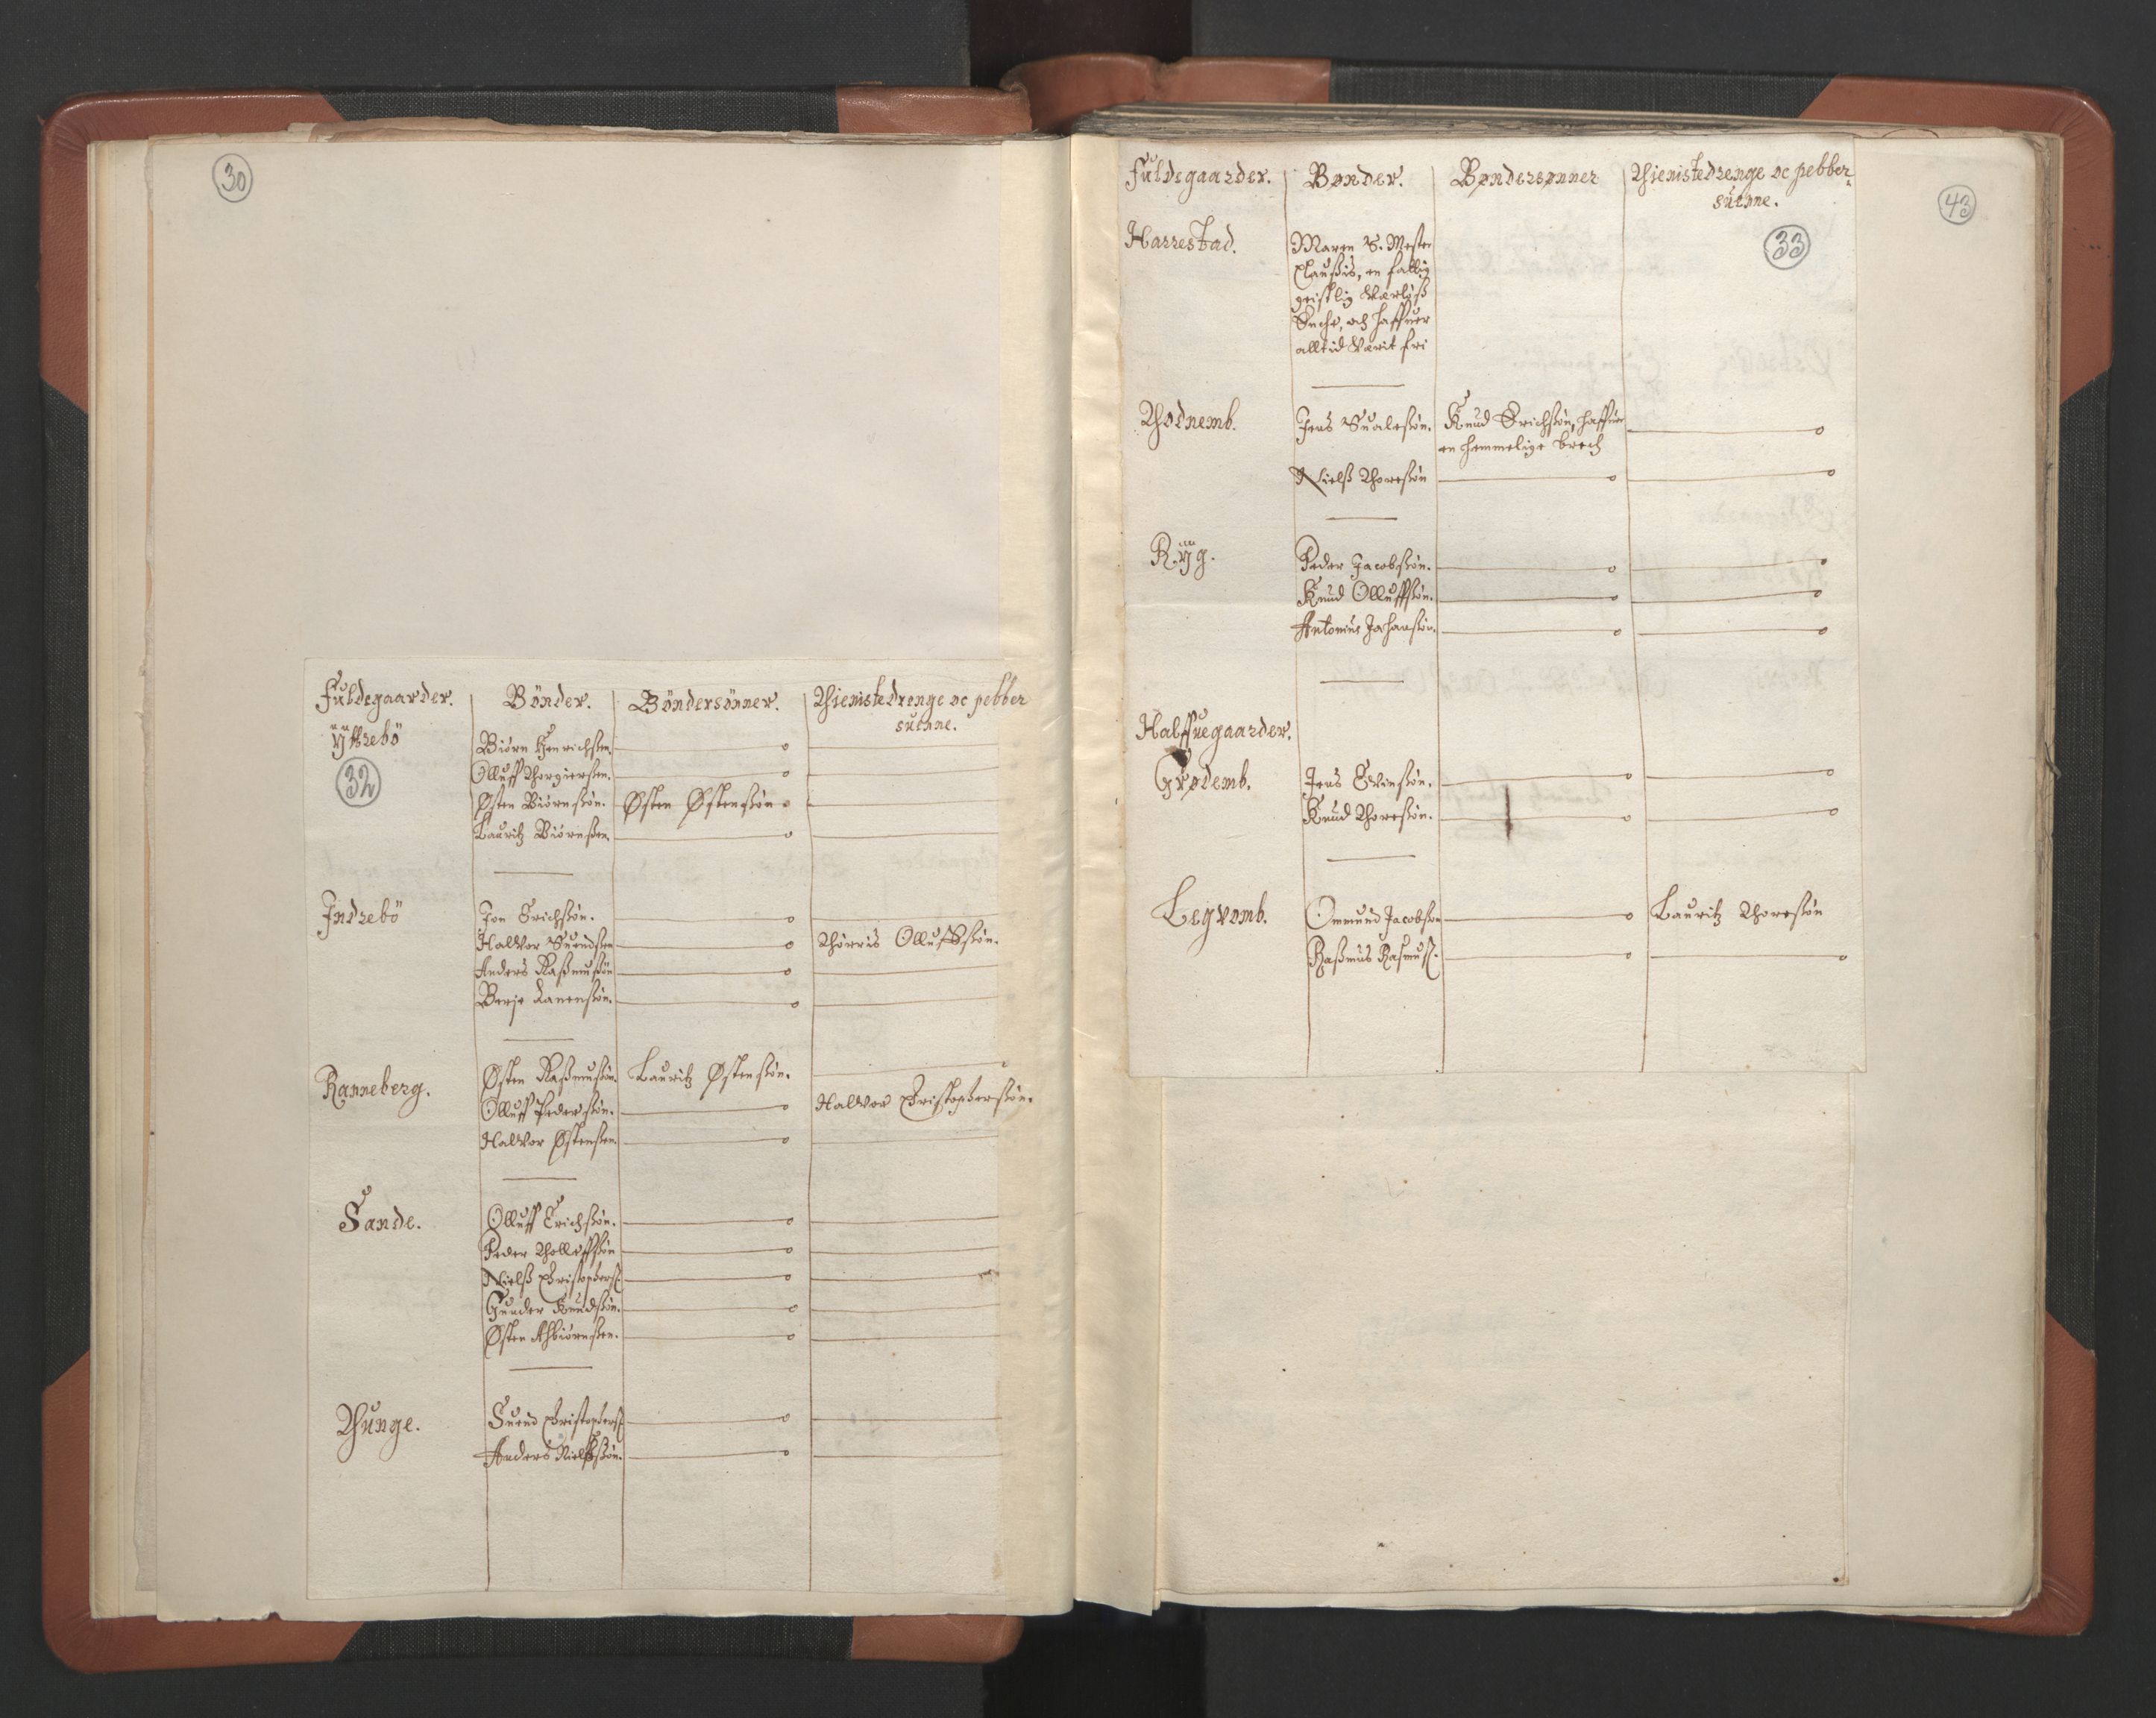 30
Fuldegaarder. Bönder. Böndersönner. Thienistedrenge oc pebber
suenne.
Yttrebö
32
Biörn Henrichßen. o
Olluff Thorgierßen. o
Østen Biörnßön. Østen Østenßön o
Lauritz Biörnßen. o
Indrebö Jon Erichßön. o
Halvor Suendßen o Thörris Olluffßön.
Anders Raßmußön o
Berje Lanenßön. o
Ranneberg. Østen Raßmußön. Lauritz Østenßön.
Olluff Pederßön. o Halvor Christopherßön.
Halvor Østenßen. o
Sande. Olluff Erichßön. o
Peder Tholluffßön o
Nielß Christophers. o
Gunder Knudßön. o
Østen Aßbiörnßen. o
Thunge. Suend Christophers. o
Anders Nielßßön. o
43
Fuldegaarder. Bønder. Bøndersønner Thienistedrenge oc pebber-
suenne.
33
Harrestad. Maren S. Mester
Claußis, en fattig
geistlig Værlöß
Encke, och haffuer
alltid Værit fri
Thodnemb. Jens Sualeßön. Knud Erichßön, haffuer o
en hemmelige breck
Nielß Thoreßön o o
Ryg. Peder Jacobßön. o o
Knud Olluffßön. o o
Antonius Johanßön. o o
Halffuegaarder.
Grødemb. Jens Evinßön. o o
Knud Thoreßön. o o
Legvemb. Ommund Jacobßön o Lauritz Thoreßön
Raßmus Rasmuß. o o